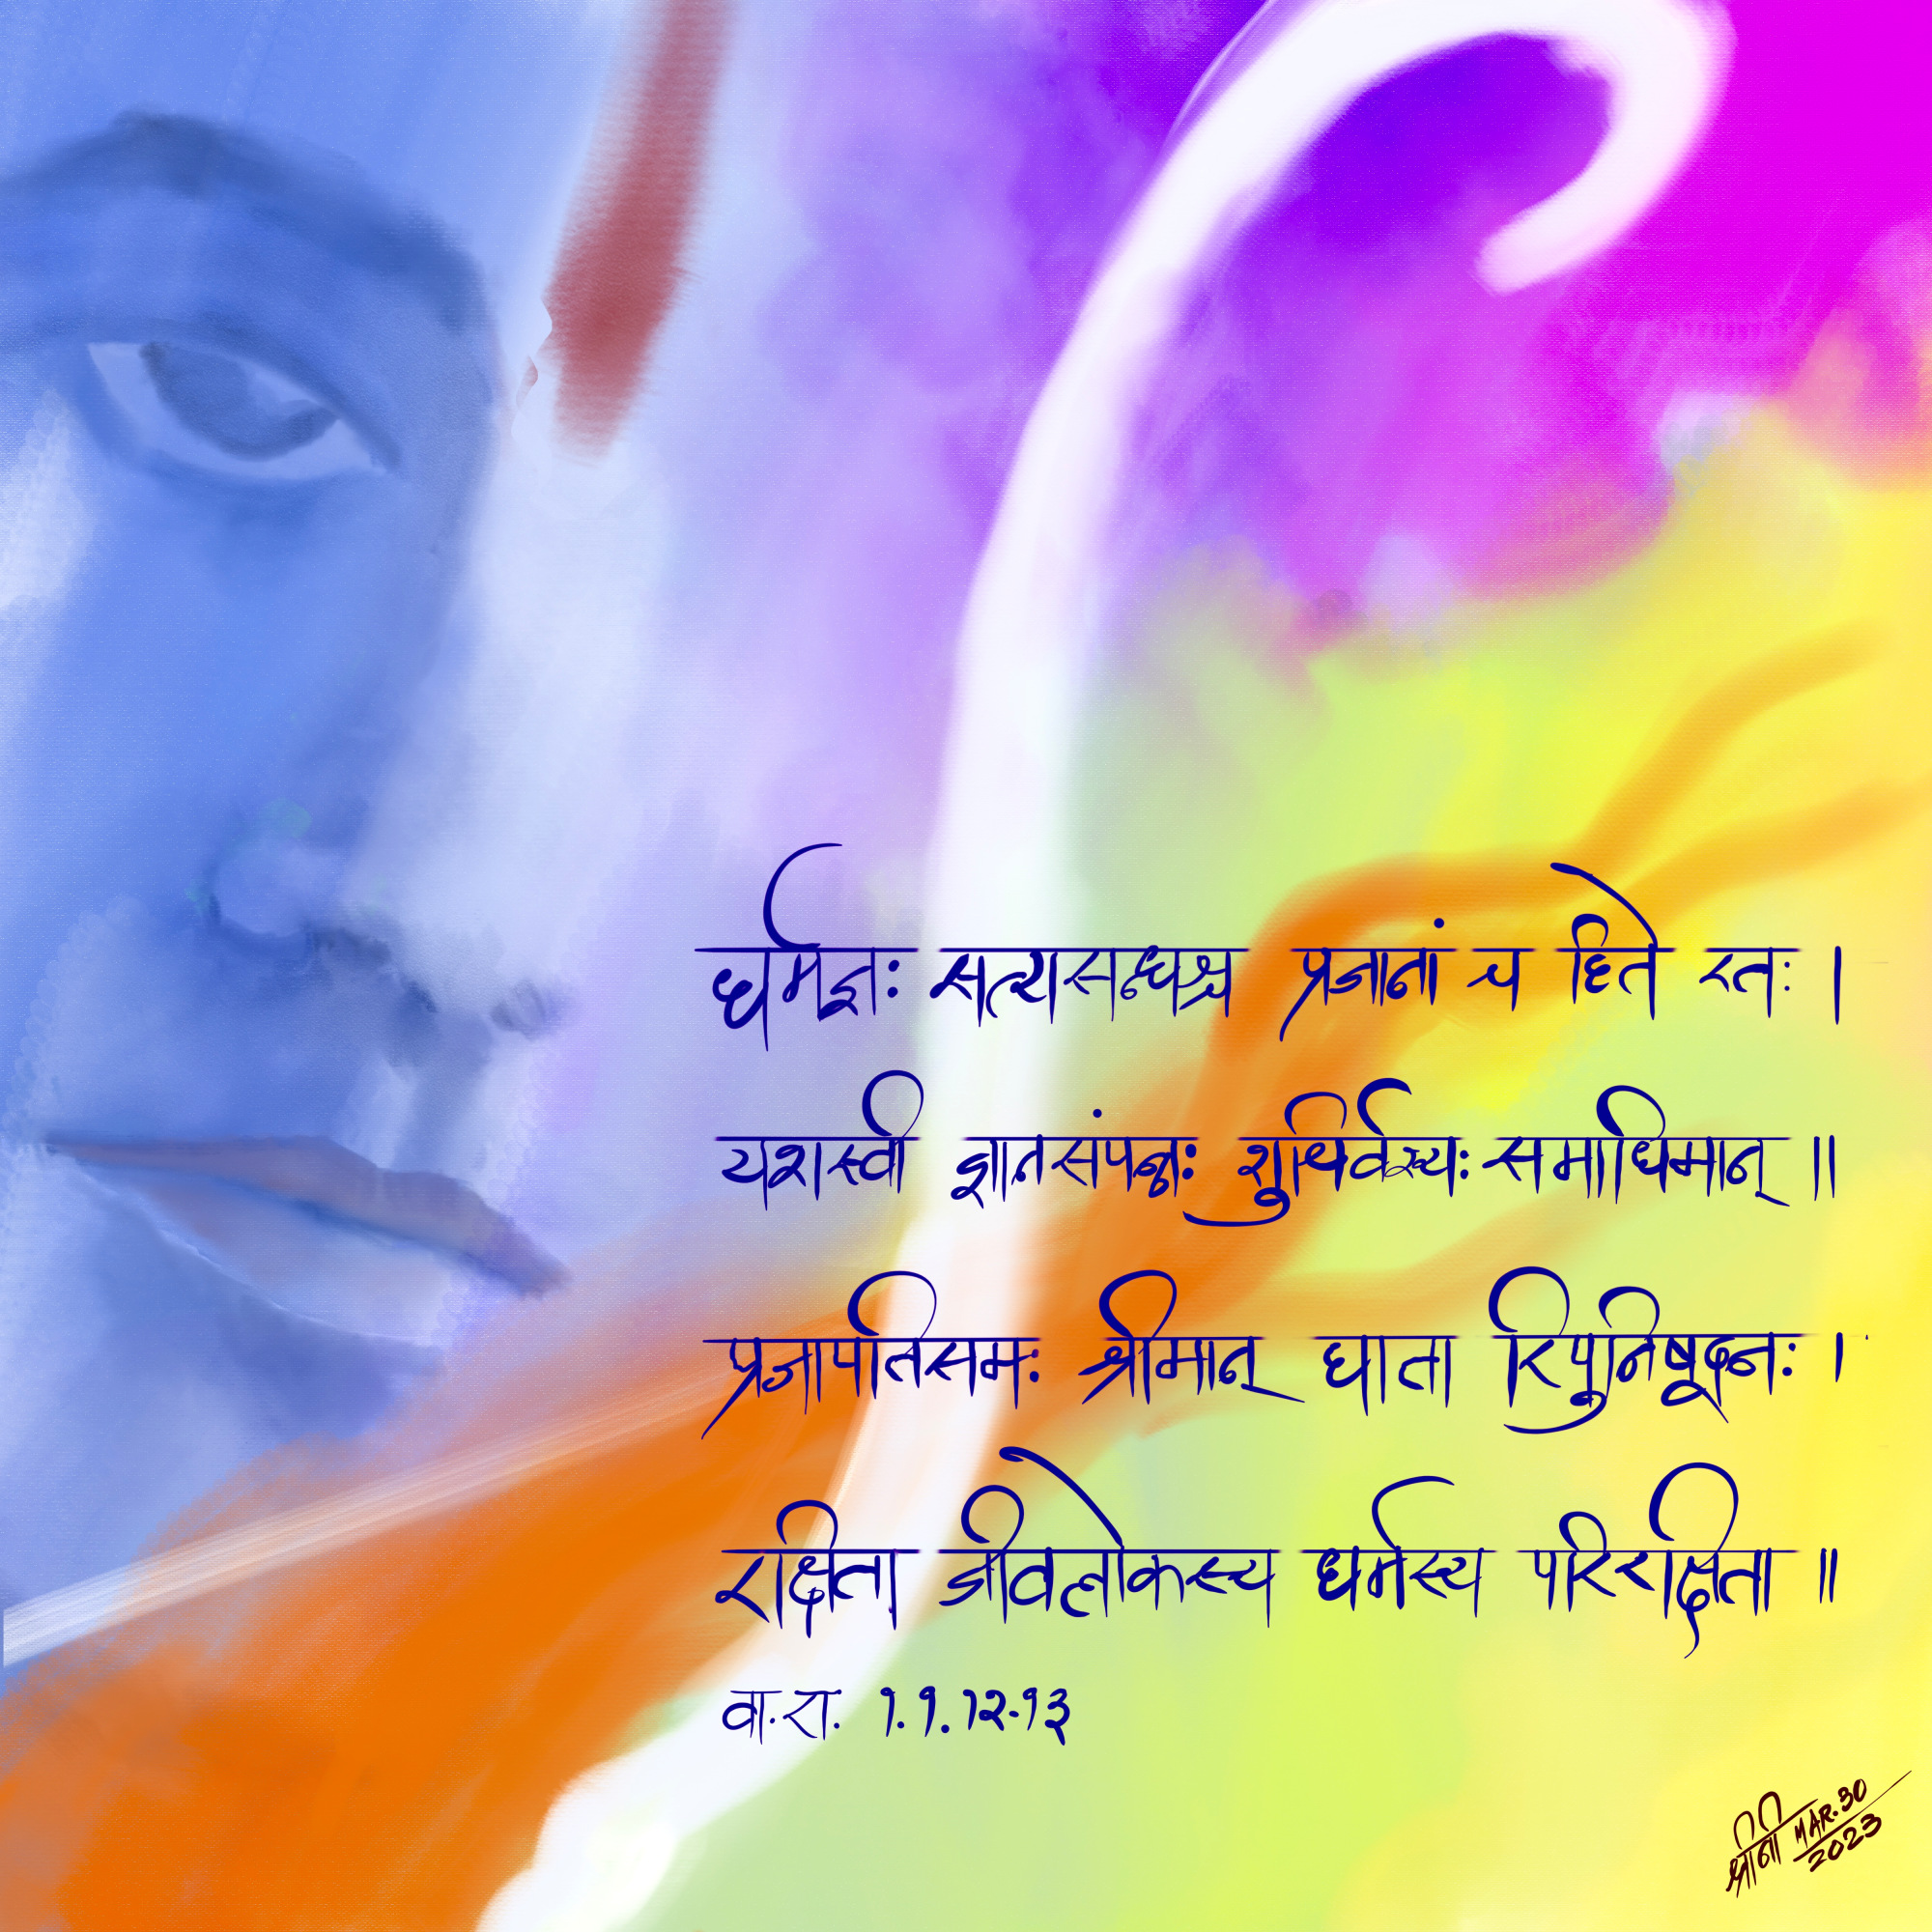 धर्मज्ञः सत्यसन्धश्च प्रजानां च हिते रतः ।
यशस्वी ज्ञानसंपन्नः शुचिर्वश्यः समाधिमान् ॥
प्रजापतिसमः श्रीमान् धाता रिपुनिषूदनः ।
रक्षिता जीवलोकस्य धर्मस्य परिरक्षिता ॥
वा. रा. १.१.१२-१३
MAR.30
2023